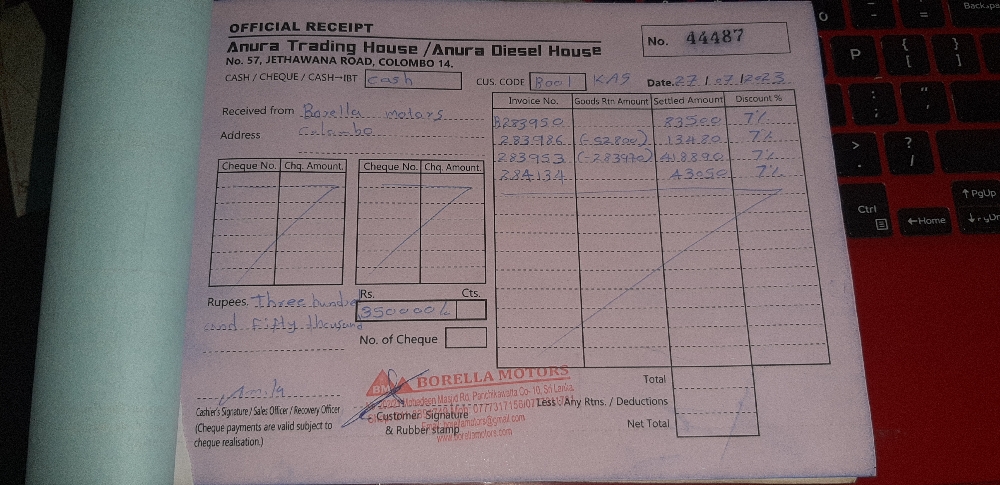 OFFICIAL RECEIPT
Anura Trading House / Anura Diesel House
No. 57, JETHAWANA ROAD, COLOMBO 14.
No. 44487
CASH / CHEQUE / CASH-IBT Cash
CUS. CODE B001 KAS Date. 27 / 07 / 2023
Received from Borella motors
Address Colombo
Cheque No. Chq. Amount. Cheque No. Chq. Amount.
Invoice No. Goods Rtn Amount Settled Amount Discount %
R283950 83500 7%
283986 (-52800) 13480 7%
283953 7%
284134 43050 7%
Rupees. Three hundred
and Fifty thousand
Rs. Cts.
350000/-
No. of Cheque
Cashier's Signature / Sales Officer / Recovery Officer
(Cheque payments are valid subject to
cheque realisation.)
BM BORELLA MOTORS
Mohedeen Masjid Rd, Panchikawatta Co- 10, Sri Lanka.
0777317158
borellamotors@gmail.com
www.borellamotors.com
Customer Signature
& Rubber stamp
Total
Less : Any Rtns. / Deductions
Net Total
O - _ = Backspa
P { [ } ]
: ; " '
> . ? /
Ctrl ←Home ↑PgUp